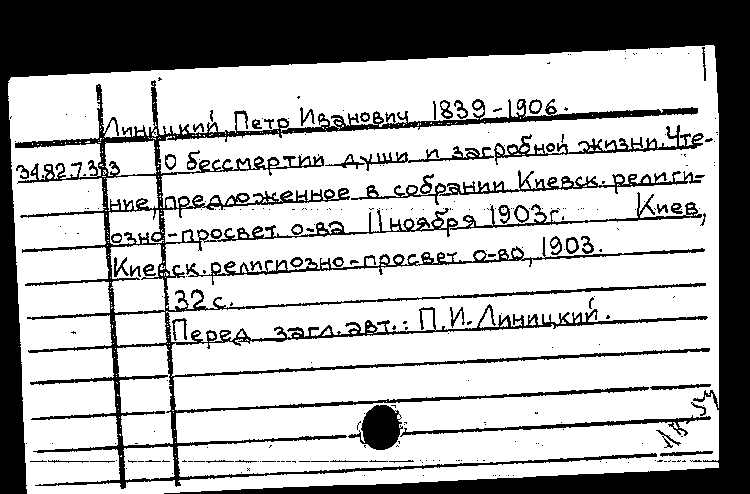 Линицкий, Петр Иванович, 1839-1906.
34.82.7.383 О бессмертии души и загробной жизни. Чте-
ние, предложенное в собрании Киевск. религи-
озно-просвет. о-ва 11 ноября 1903г. Киев,
Киевск. религиозно-просвет. о-во, 1903.
32 с.
Перед загл. авт.: П.И. Линицкий.
18-54